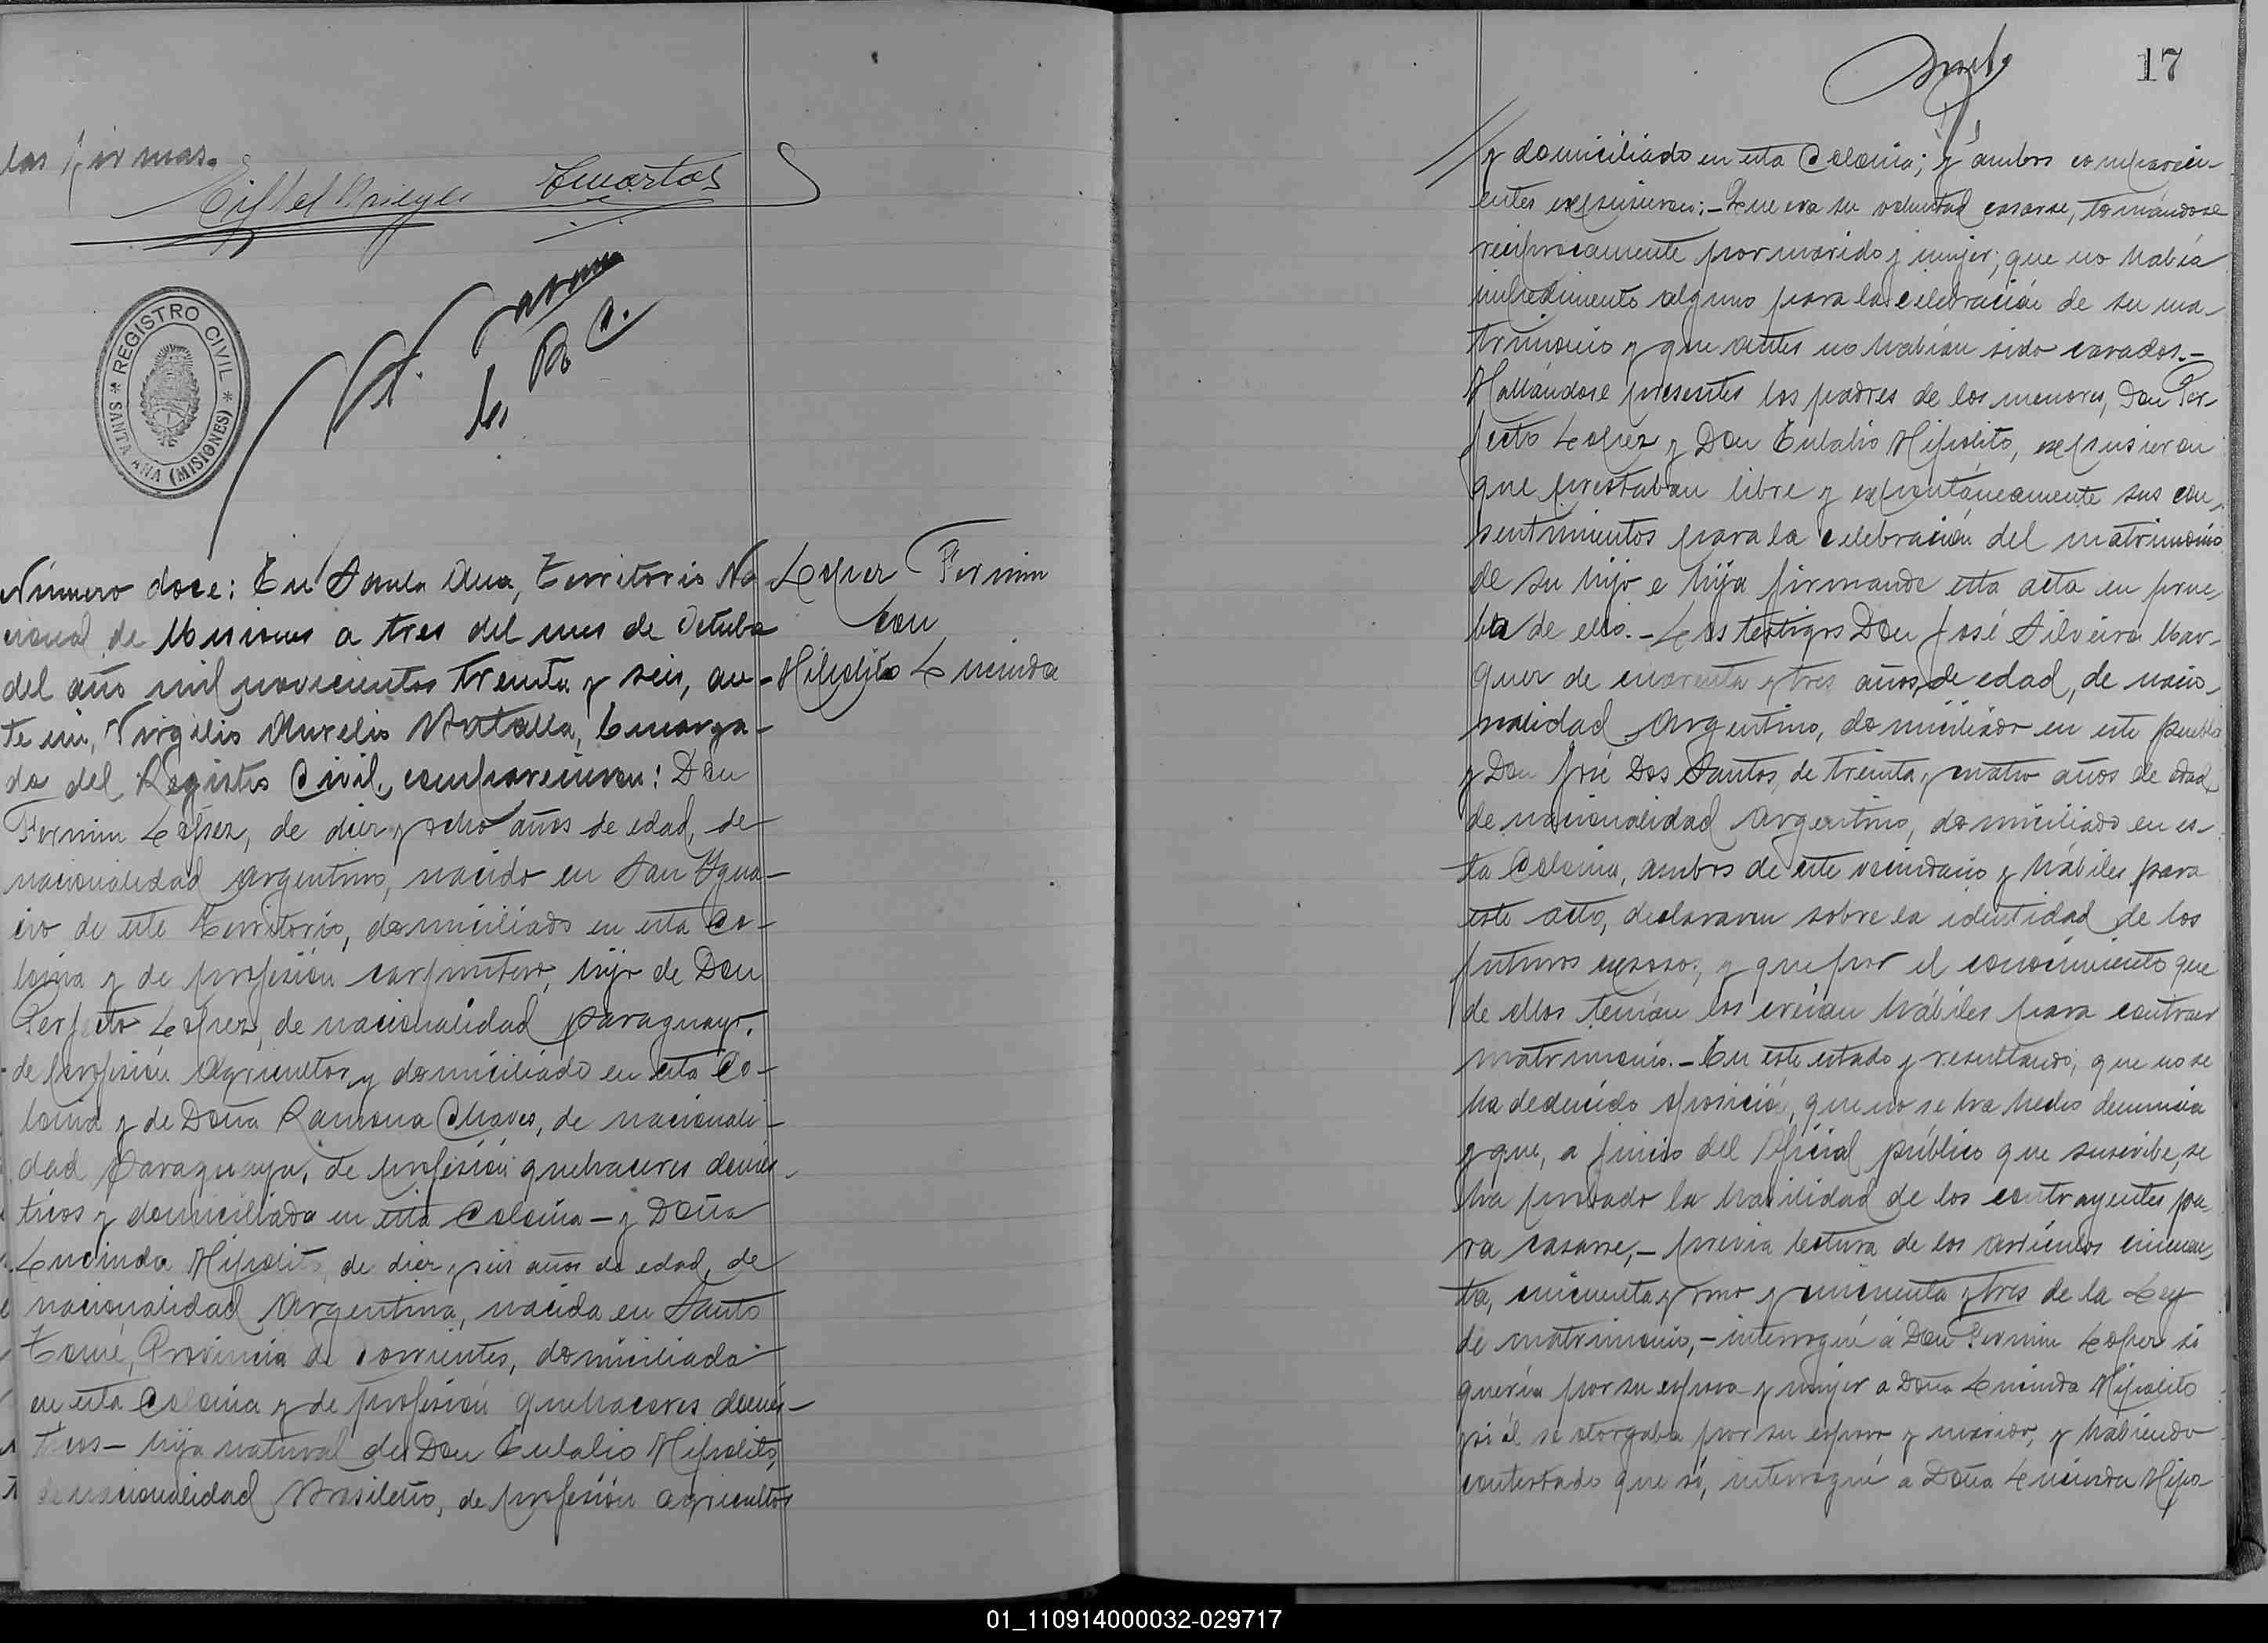 las firmas.
REGISTRO CIVIL
SANTA ANA (MISIONES)
Número doce: En Santa Ana, Territorio Na
cional de Misiones a tres del mes de Octubre
del año mil novecientos treinta y seis, an-
te mi, Virgilio Aurelio Batalla, Encarga-
do del Registro Civil, comparecieron: Don
Fermin Lopez, de diez y ocho años de edad, de
nacionalidad argentino, nacido en San Igna-
cio de este Territorio, domiciliado en esta Co-
lonia y de profesión carpintero, hijo de Don
Perfecto Lopez, de nacionalidad paraguayo,
de profesión Agricultor y domiciliado en esta Co-
lonia y de Doña Ramona Chaves, de nacionali-
dad Paraguaya, de profesión quehaceres domés-
ticos y domiciliada en esta Colonia - y Doña
Lucinda Hipolito de diez y seis años de edad, de
nacionalidad Argentina, nacida en Santo
Tomé, Provincia de Corrientes, domiciliada
en esta Colonia y de profesión quehaceres domés-
ticos - hija natural de Don Eulalio Hipolito,
de nacionalidad Brasileño, de profesión agricultor
Lopez Fermin
con
Hipolito Lucinda
17
y domiciliado en esta Colonia; y ambos compareci-
entes expusieron: - Que era su voluntad casarse, tomándose
recíprocamente por marido y mujer; que no había
impedimento alguno para la celebración de su ma-
trimonio y que antes no habían sido casados. -
Hallándose presentes los padres de los menores, Don Per-
fecto Lopez y Don Eulalio Hipolito, expusieron
que prestaban libre y expontáneamente sus con-
sentimientos para la celebración del matrimonio
de su hijo e hija firmando esta acta en prue-
ba de ello. - Los testigos Don José Silveira Mar-
quez de cuarenta y tres años, de edad, de nacio-
nalidad Argentino, domiciliado en este pueblo
y Don José Dos Santos, de treinta y cuatro años de edad,
de nacionalidad Argentino, domiciliado en es-
ta Colonia, ambos de este vecindario y hábiles para
este acto, declararon sobre la identidad de los
futuros esposos, y que por el conocimiento que
de ellos tenían los creían hábiles para contraer
matrimonio. - En este estado y resultando, que no se
ha deducido oposición, que no se ha hecho denuncia
y que, a juicio del Oficial público que suscribe, se
ha probado la habilidad de los contrayentes pa-
ra casarse, - previa lectura de los artículos cincuen-
ta, cincuenta y uno y cincuenta y tres de la Ley
de matrimonio, - interrogué á Don Fermin Lopez si
quería por su esposa y mujer a Doña Lucinda Hipolito
y si él se otorgaba por su esposo y marido, y habiendo
contestado que sí, interrogué a Doña Lucinda Hipo-
01_110914000032-029717